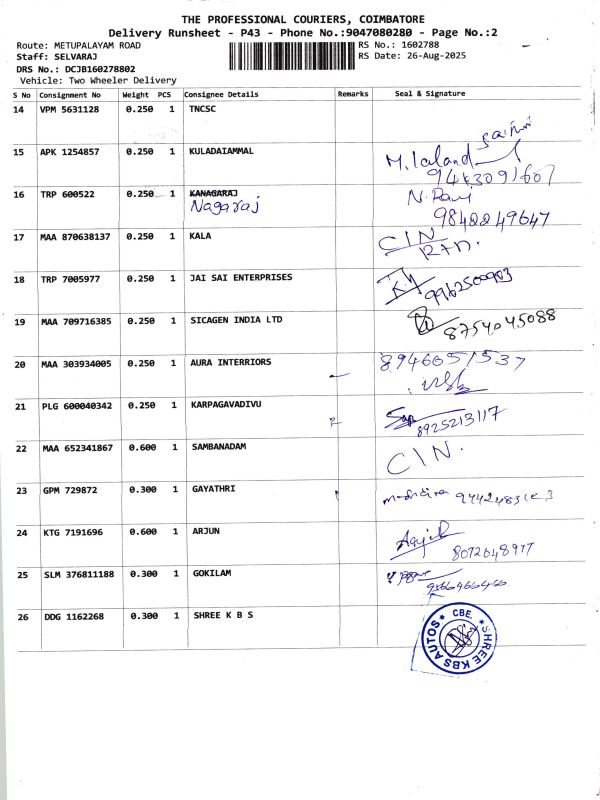 THE PROFESSIONAL COURIERS, COIMBATORE
Delivery Runsheet - P43 - Phone No.:9047080280 - Page No.:2
Route: METUPALAYAM ROAD RS No.: 1602788
Staff: SELVARAJ RS Date: 26-Aug-2025
DRS No.: DCJB160278802
Vehicle: Two Wheeler Delivery
S No Consignment No Weight PCS Consignee Details Remarks Seal & Signature
14 VPM 5631128 0.250 1 TNCSC
15 APK 1254857 0.250 1 KULADAIAMMAL
9443091607
16 TRP 600522 0.250 1 KANAGARAJ N. Ravi
Nagaraj 9842249647
17 MAA 870638137 0.250 1 KALA CIN
18 TRP 7005977 0.250 1 JAI SAI ENTERPRISES
19 MAA 709716385 0.250 1 SICAGEN INDIA LTD 8754045088
20 MAA 303934005 0.250 1 AURA INTERRIORS 8946051537
21 PLG 600040342 0.250 1 KARPAGAVADIVU
8925213117
22 MAA 652341867 0.600 1 SAMBANADAM CIN.
23 GPM 729872 0.300 1 GAYATHRI
24 KTG 7191696 0.600 1 ARJUN
25 SLM 376811188 0.300 1 GOKILAM
26 DDG 1162268 0.300 1 SHREE K B S
CBE. * SHREE KBS AUTOS *